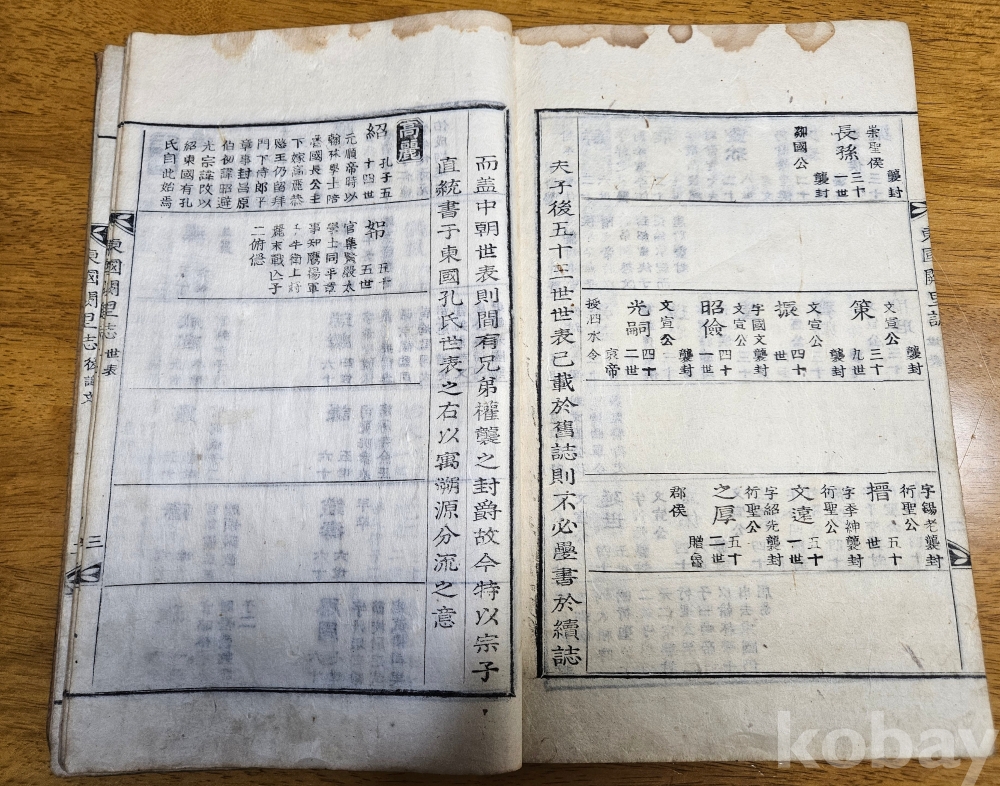 崇聖侯 襲封
長孫 三十一世
鄒國公 襲封
文宣公 襲封
策 三十九世
文宣公 襲封
振 四十世
字國文襲封
文宣公
昭儉 四十一世
文宣公 襲封
光嗣 四十二世
哀帝
授泗水令
字錫老襲封
衍聖公
搢 五十世
字季紳襲封
衍聖公
文遠 五十一世
字紹先襲封
衍聖公
之厚 五十二世
贈魯
郡侯
夫子後五十三世世表已載於舊誌則不必疊書於續誌
而盖中朝世表則間有兄弟權襲之封爵故今特以宗子
直統書于東國孔氏世表之右以寓溯源分流之意
高麗
紹 孔子五十四世
元順帝時以
翰林學士陪
魯國長公主
下嫁高麗恭
愍王仍留拜
門下侍郎平
章事封昌原
伯初諱昭避
光宗諱改以
紹東國有孔
氏自此始焉
五十五世
官集賢殿太
學士同平章
事知鷹揚軍
上將
麗末戰亡子
二俯億
東國闕里志 世表
三
東國闕里志
東國闕里誌
kobay